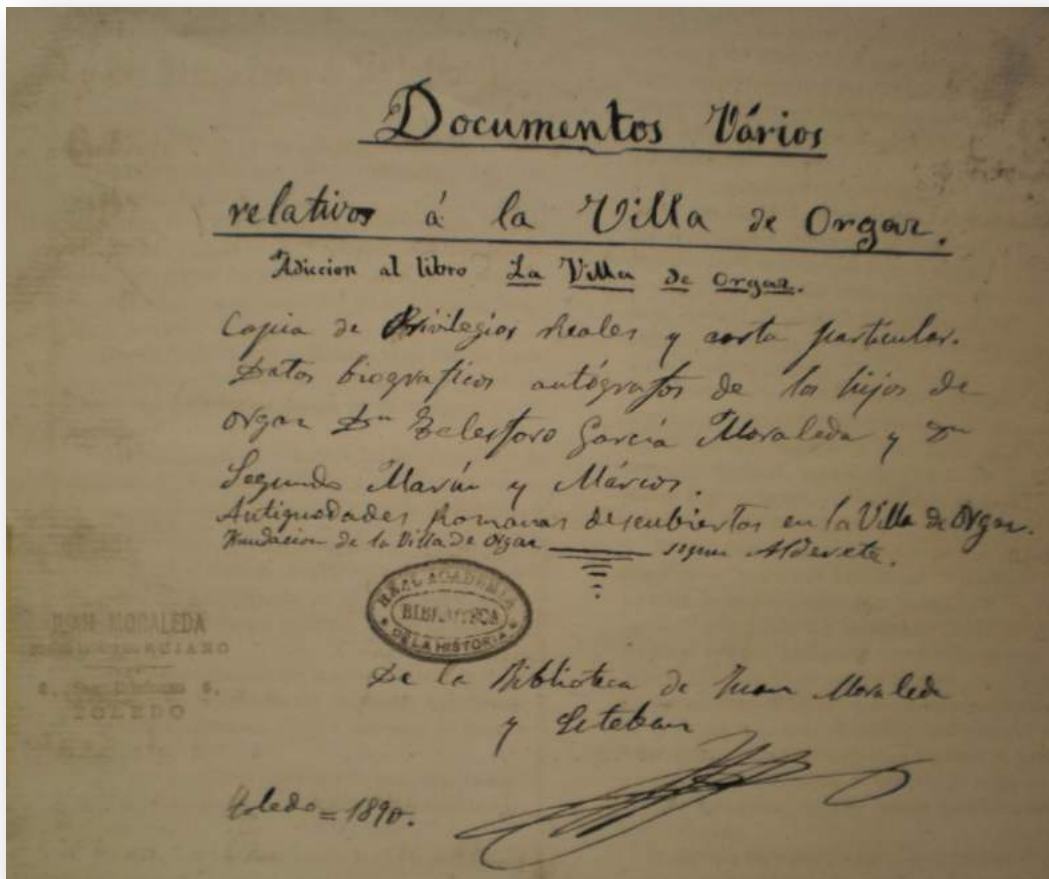 Documentos Vários
relativos á la Villa de Orgaz.
Adiccion al libro La Villa de Orgaz.
Copia de Privilegios Reales y carta particular.
Datos biograficos autógrafos de los hijos de
Orgaz Dn Telesforo García Moraleda y Dn
Segundo Marín y Márcos.
Antiguedades Romanas descubiertas en la Villa de Orgaz.
Fundacion de la Villa de Orgaz segun Alderete.
REAL ACADEMIA
BIBLIOTECA
DE LA HISTORIA
JUAN MORALEDA
TOLEDO
De la Biblioteca de Juan Moraleda
y Esteban
Toledo = 1890.